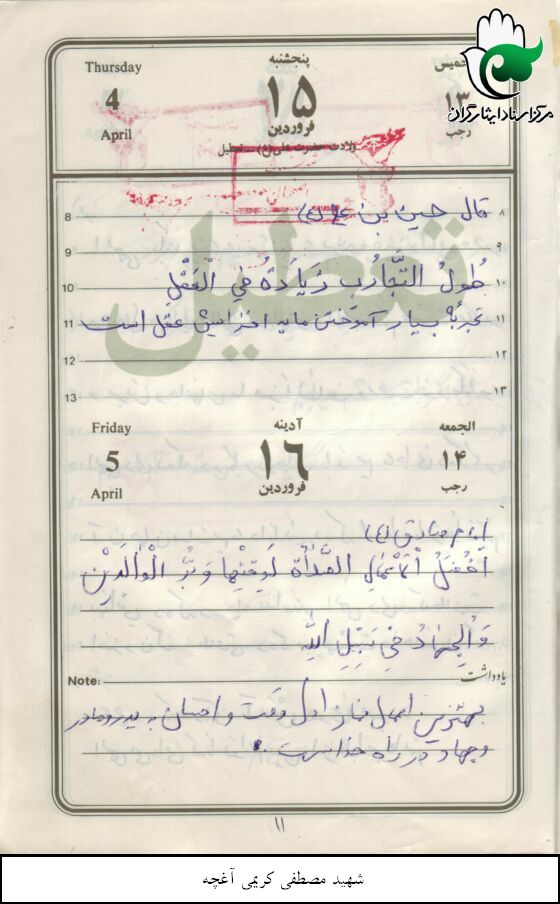 مرکز اسناد ایثارگران
Thursday
4
April
پنجشنبه
۱۵
فروردین
خمیس
۱۳
رجب
ولادت حضرت علی (ع) - تعطیل
تعطیل
قال حسین بن علی (ع)
8
۸
9
۹
طُولُ التَّجارُبِ زیادَةٌ فِی الْعَقْلِ
10
۱۰
تجربهٔ بسیار آموختن مایه افزایش عقل است
11
۱۱
12
۱۲
13
۱۳
Friday
5
April
آدینه
۱۶
فروردین
الجمعه
۱۴
رجب
امام صادق (ع)
اَفْضَلُ الْاَعْمالِ الصَّلوٰةُ لِوَقْتِها وَ بِرُّ الْوٰالَدَیْنِ
وَ الْجِهادُ فی سَبیلِ اللهِ
Note:
یادداشت
بهترین اعمال نماز اول وقت و احسان به پدر و مادر
و جهاد در راه خداست.
۱۱
شهید مصطفی کریمی آغچه